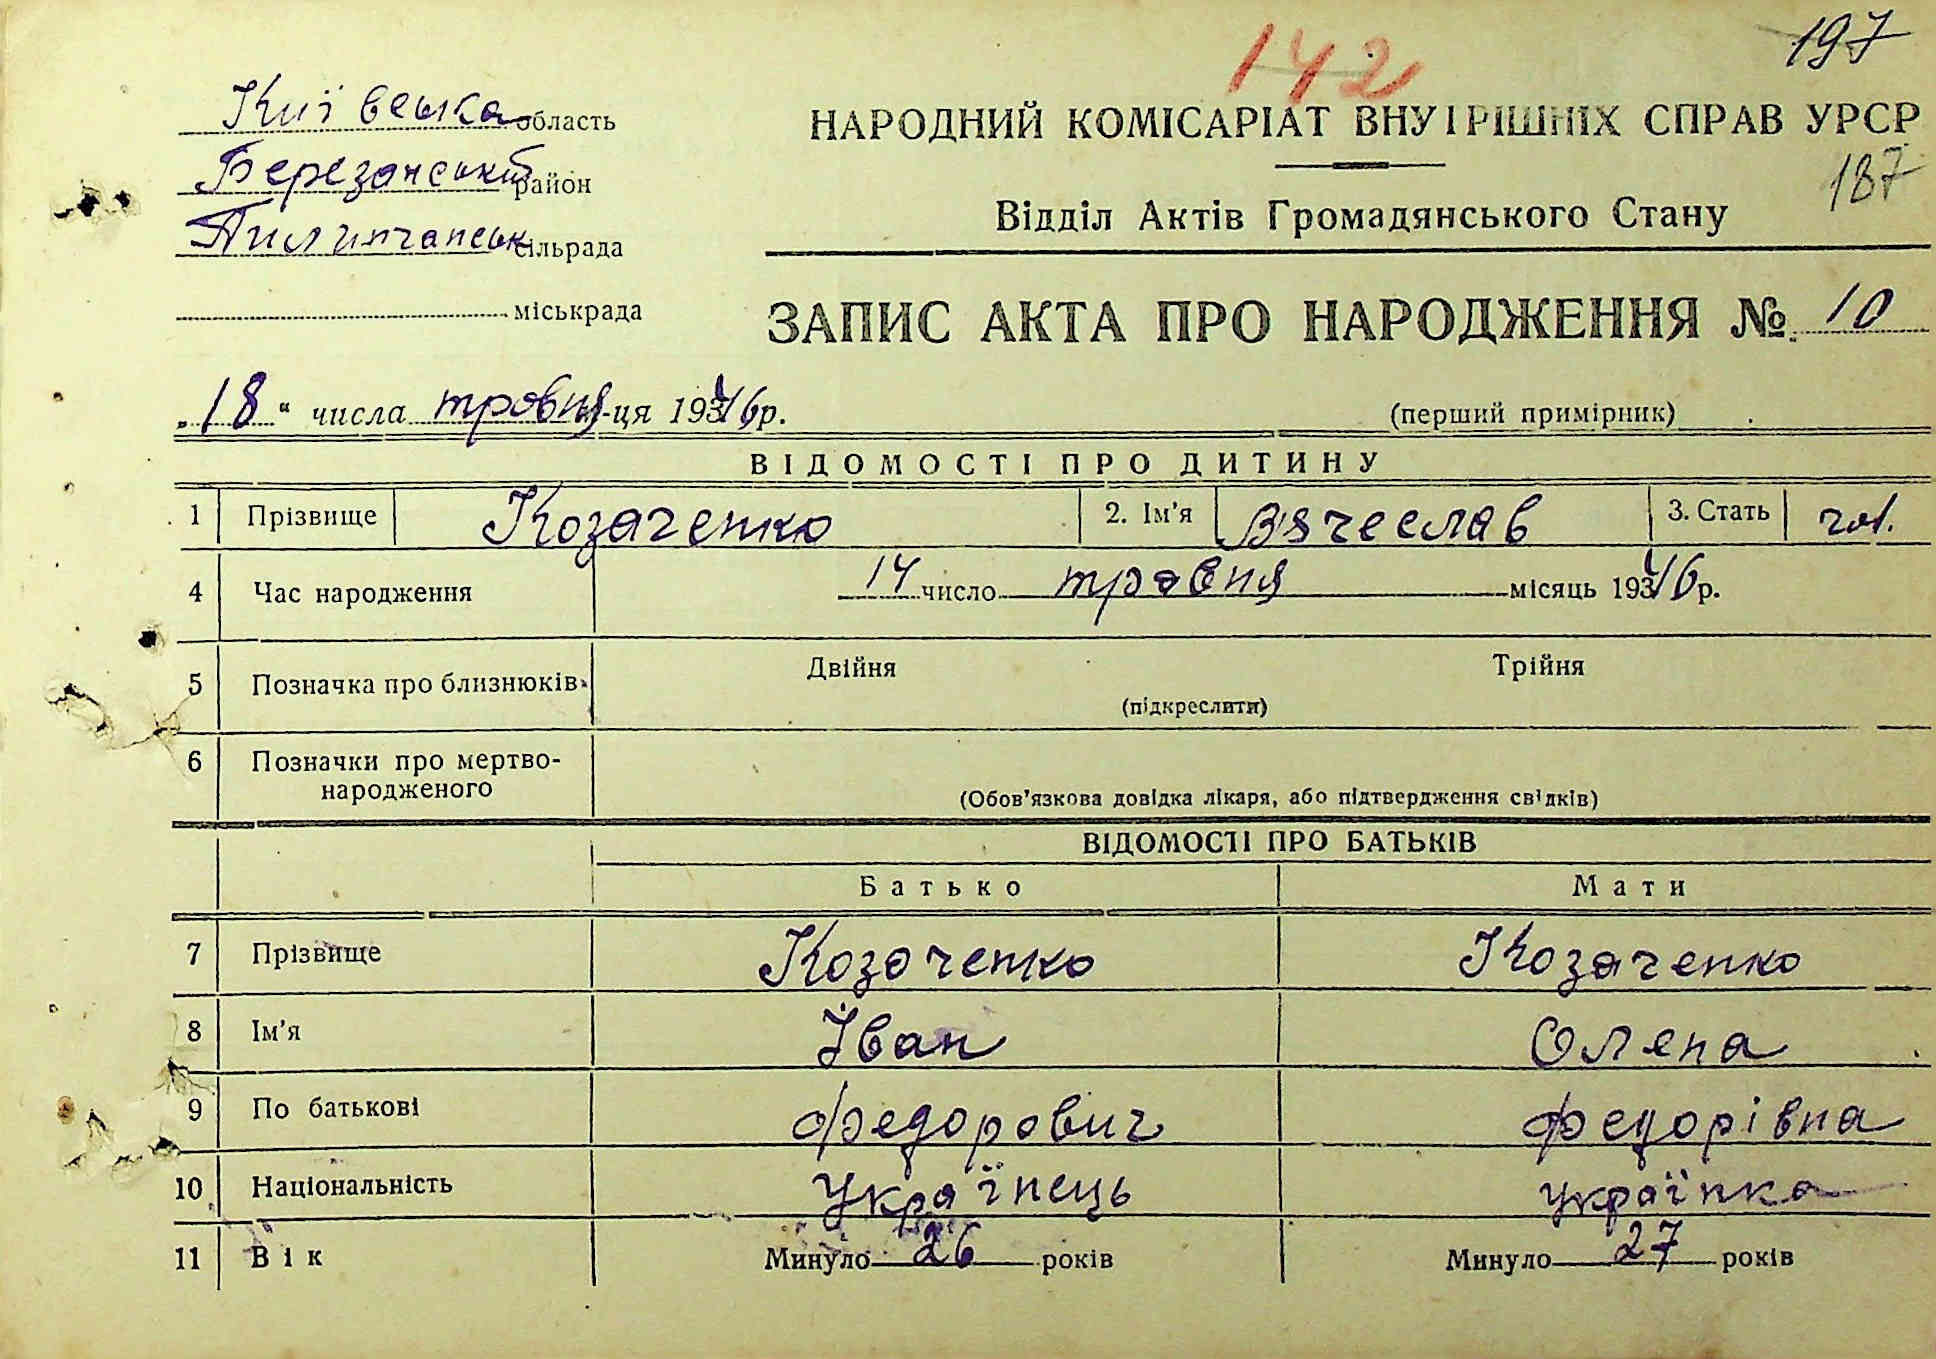 142
197
Київська область
НАРОДНИЙ КОМІСАРІАТ ВНУТРІШНІХ СПРАВ УРСР
Березанський район
187
Відділ Актів Громадянського Стану
Пилипчанськ сільрада
міськрада
ЗАПИС АКТА ПРО НАРОДЖЕННЯ № 10
„18“ числа травня м-ця 1946 р.
(перший примірник)
ВІДОМОСТІ ПРО ДИТИНУ
1 Прізвище Козаченко 2. Ім'я Вячеслав 3. Стать чол.
4 Час народження 14 число травня місяць 1946 р.
5 Позначка про близнюків Двійня Трійня
(підкреслити)
6 Позначки про мертво-
народженого
(Обов'язкова довідка лікаря, або підтвердження свідків)
ВІДОМОСТІ ПРО БАТЬКІВ
Батько Мати
7 Прізвище Козаченко Козаченко
8 Ім'я Іван Олена
9 По батькові Федорович Федорівна
10 Національність Українець українка
11 Вік Минуло 26 років Минуло 27 років